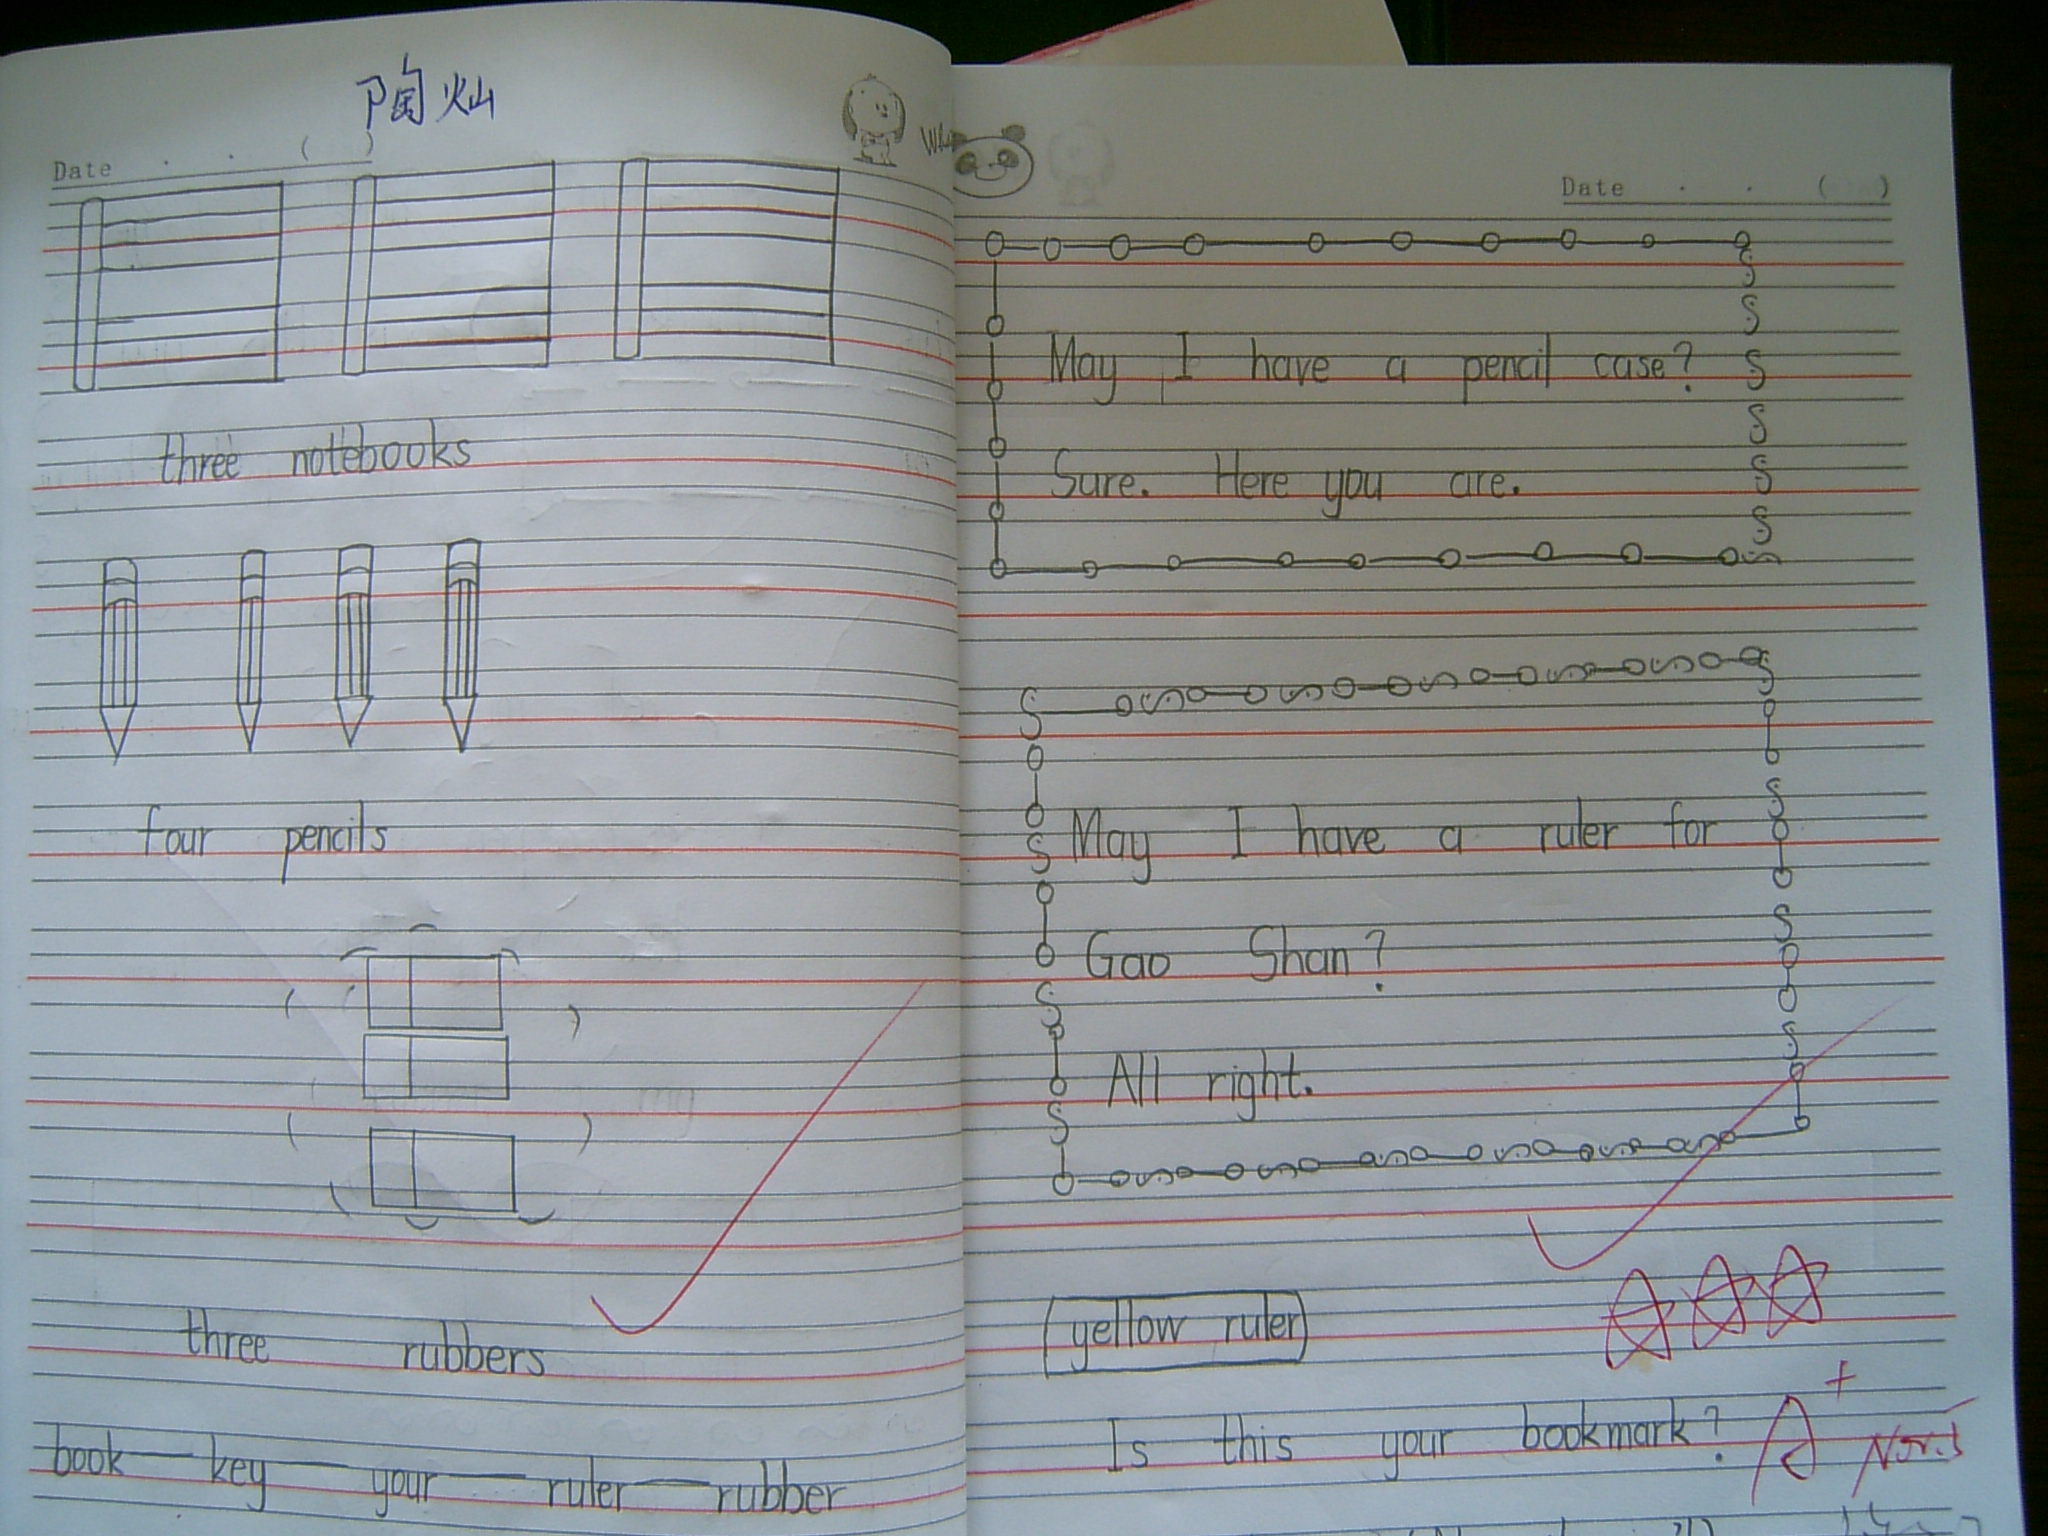 陶灿
Date . . ( )
three notebooks
four pencils
three rubbers
book — key — your — ruler — rubber
Date . . ( )
May I have a pencil case?
Sure. Here you are.
May I have a ruler for
Gao Shan?
All right.
yellow ruler
Is this your bookmark?
A+
Nov.5